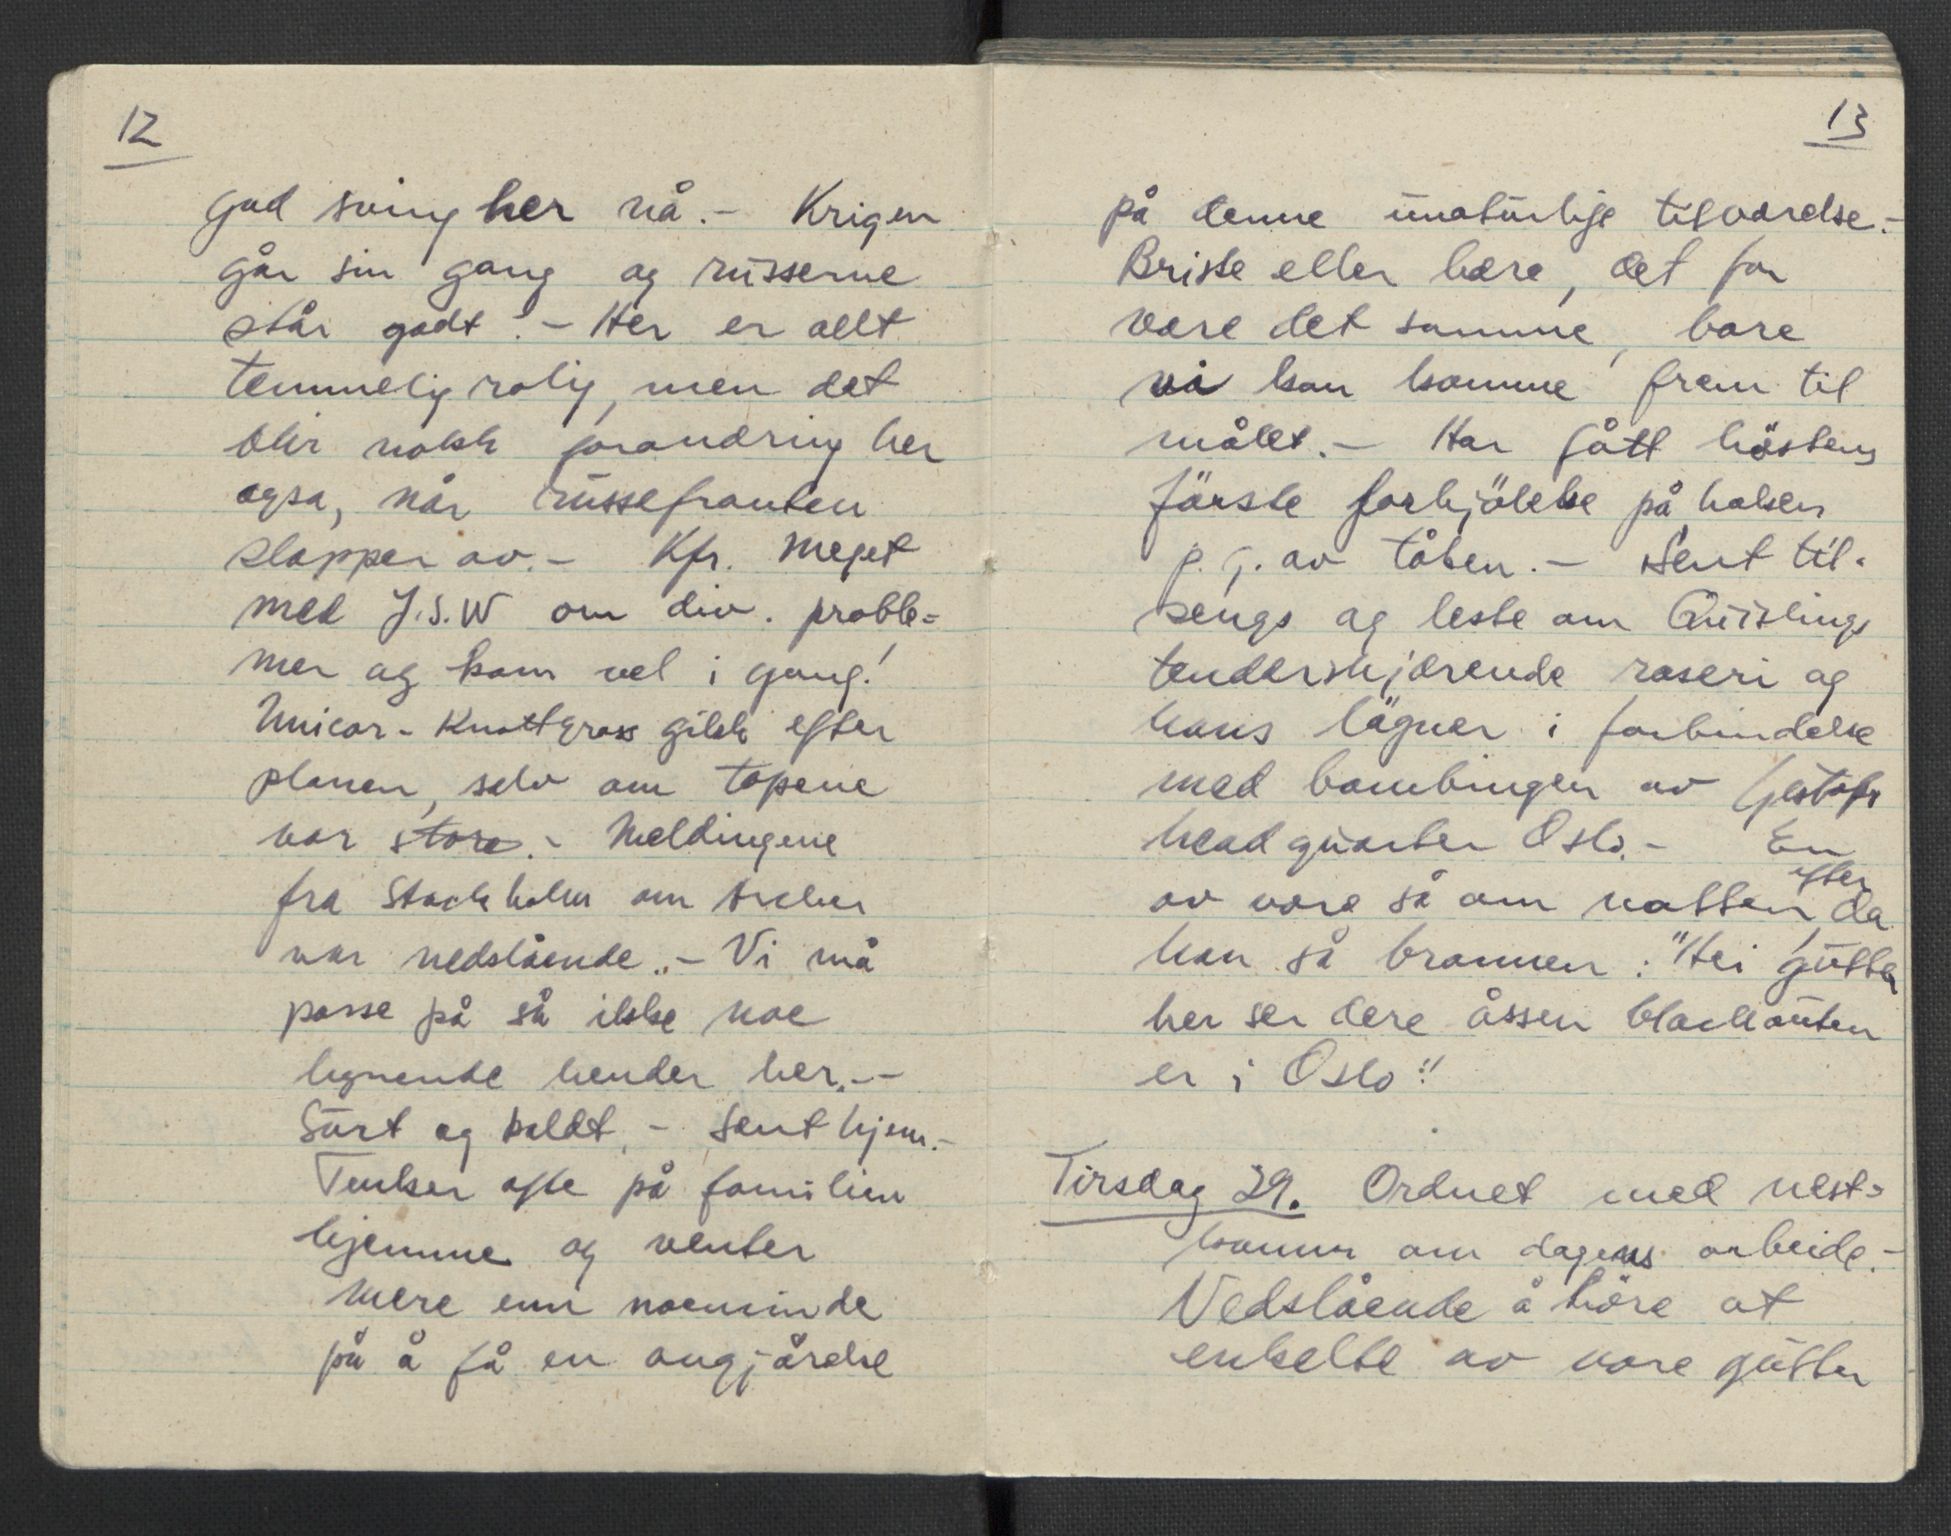 12
god sving her nå. - Krigen
går sin gang og russerne
står godt. - Her er allt
temmelig rolig, men det
blir nokk forandring her
ogsa, når russefronten
slapper av. - Kfr. meget
med J.S.W om div. proble=
mer og kom vel i gang!
Unicor - Knottgrass gikk efter
planen, selv om tapene
var store. - Meldingene
fra Stockholm om Archer
var nedslående. - Vi må
passe på så ikke noe
lignende hender her. --
Surt og koldt. - Sent hjem. -
Tenker ofte på familien
hjemme og venter
mere enn noensinde
på å få en avgjörelse
13
på denne unaturlige tilværelse. -
Briste eller bære, det for
være det samme, bare
vi kan komme frem til
målet. - Har fått höstens
förste forkjölelse på halsen
p.g. av tåken. - Sent til-
sengs og leste om Quislings
tenderskjærende raseri og
hans lögner i forbindelse
med bombingen av Gestapo
headquarter Oslo. - En
av våre sa om natten efter, da
han så brannen: "Hei gutter
her ser dere åssen blackouten
er i Oslo"!
Tirsdag 29. Ordnet med nest=
komm om dagens arbeide. -
Nedslående å höre at
enkelte av våre gutter